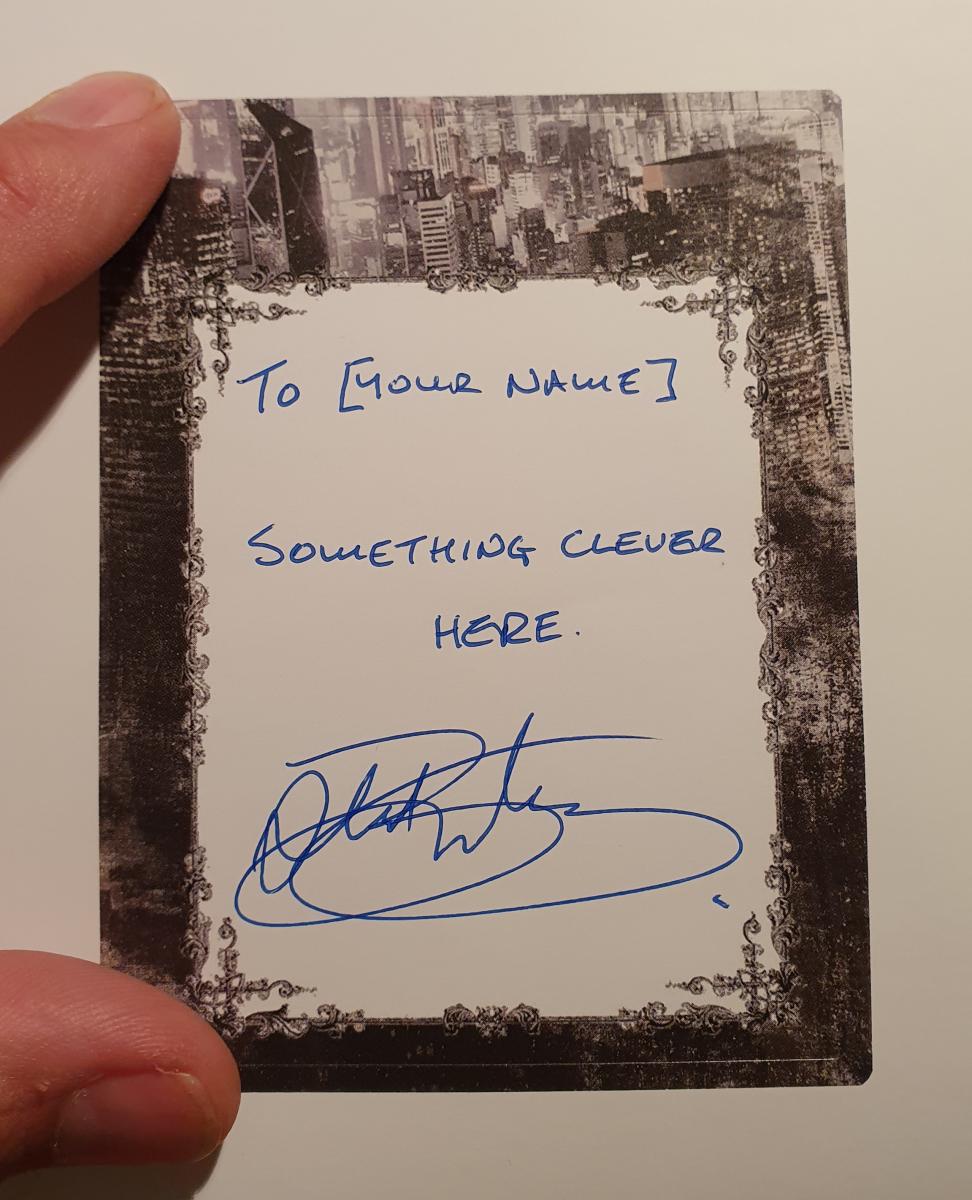 To [YOUR NAME]
SOMETHING CLEVER
HERE.